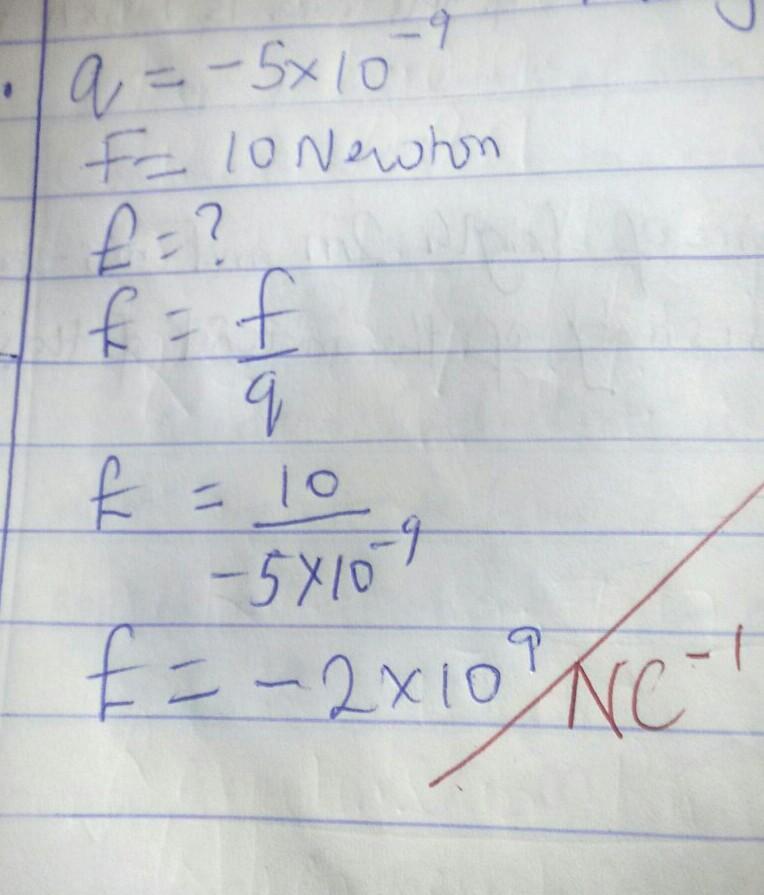 . q = -5×10⁻⁹
F = 10 Newton
E = ?
E = f/q
E = 10/-5×10⁻⁹
E = -2×10⁹ NC⁻¹